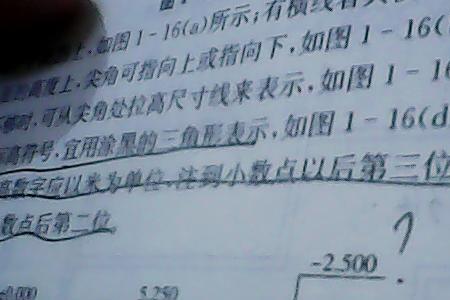 上,如图1-16(a)所示;有横线者
高度上,尖角可指向上或指向下,如图1-16(
时,可从尖角处拉高尺寸线来表示,如图1-16
高符号,宜用涂黑的三角形表示,如图1-16(d
高数字应以米为单位,注到小数点以后第三位
数点后第二位。
-2.500
5.250